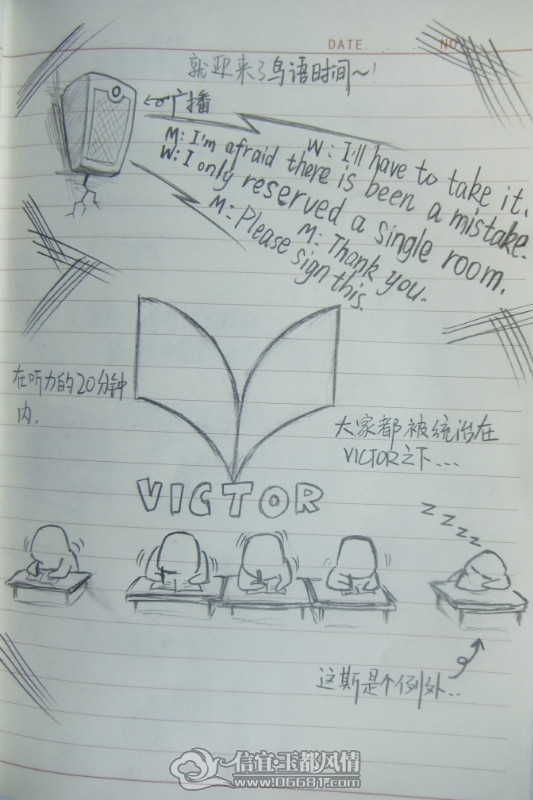 DATE. NO
就迎来了鸟语时间~!
广播
W: I'll have to take it.
M: I'm afraid there is been a mistake.
W: I only reserved a single room.
M: Thank you.
M: Please sign this.
在听力的20分钟
内.
大家都被统治在
VICTOR之下...
VICTOR
ZZZZ
这斯是个例外..
信宜·玉都风情
www.06681.com